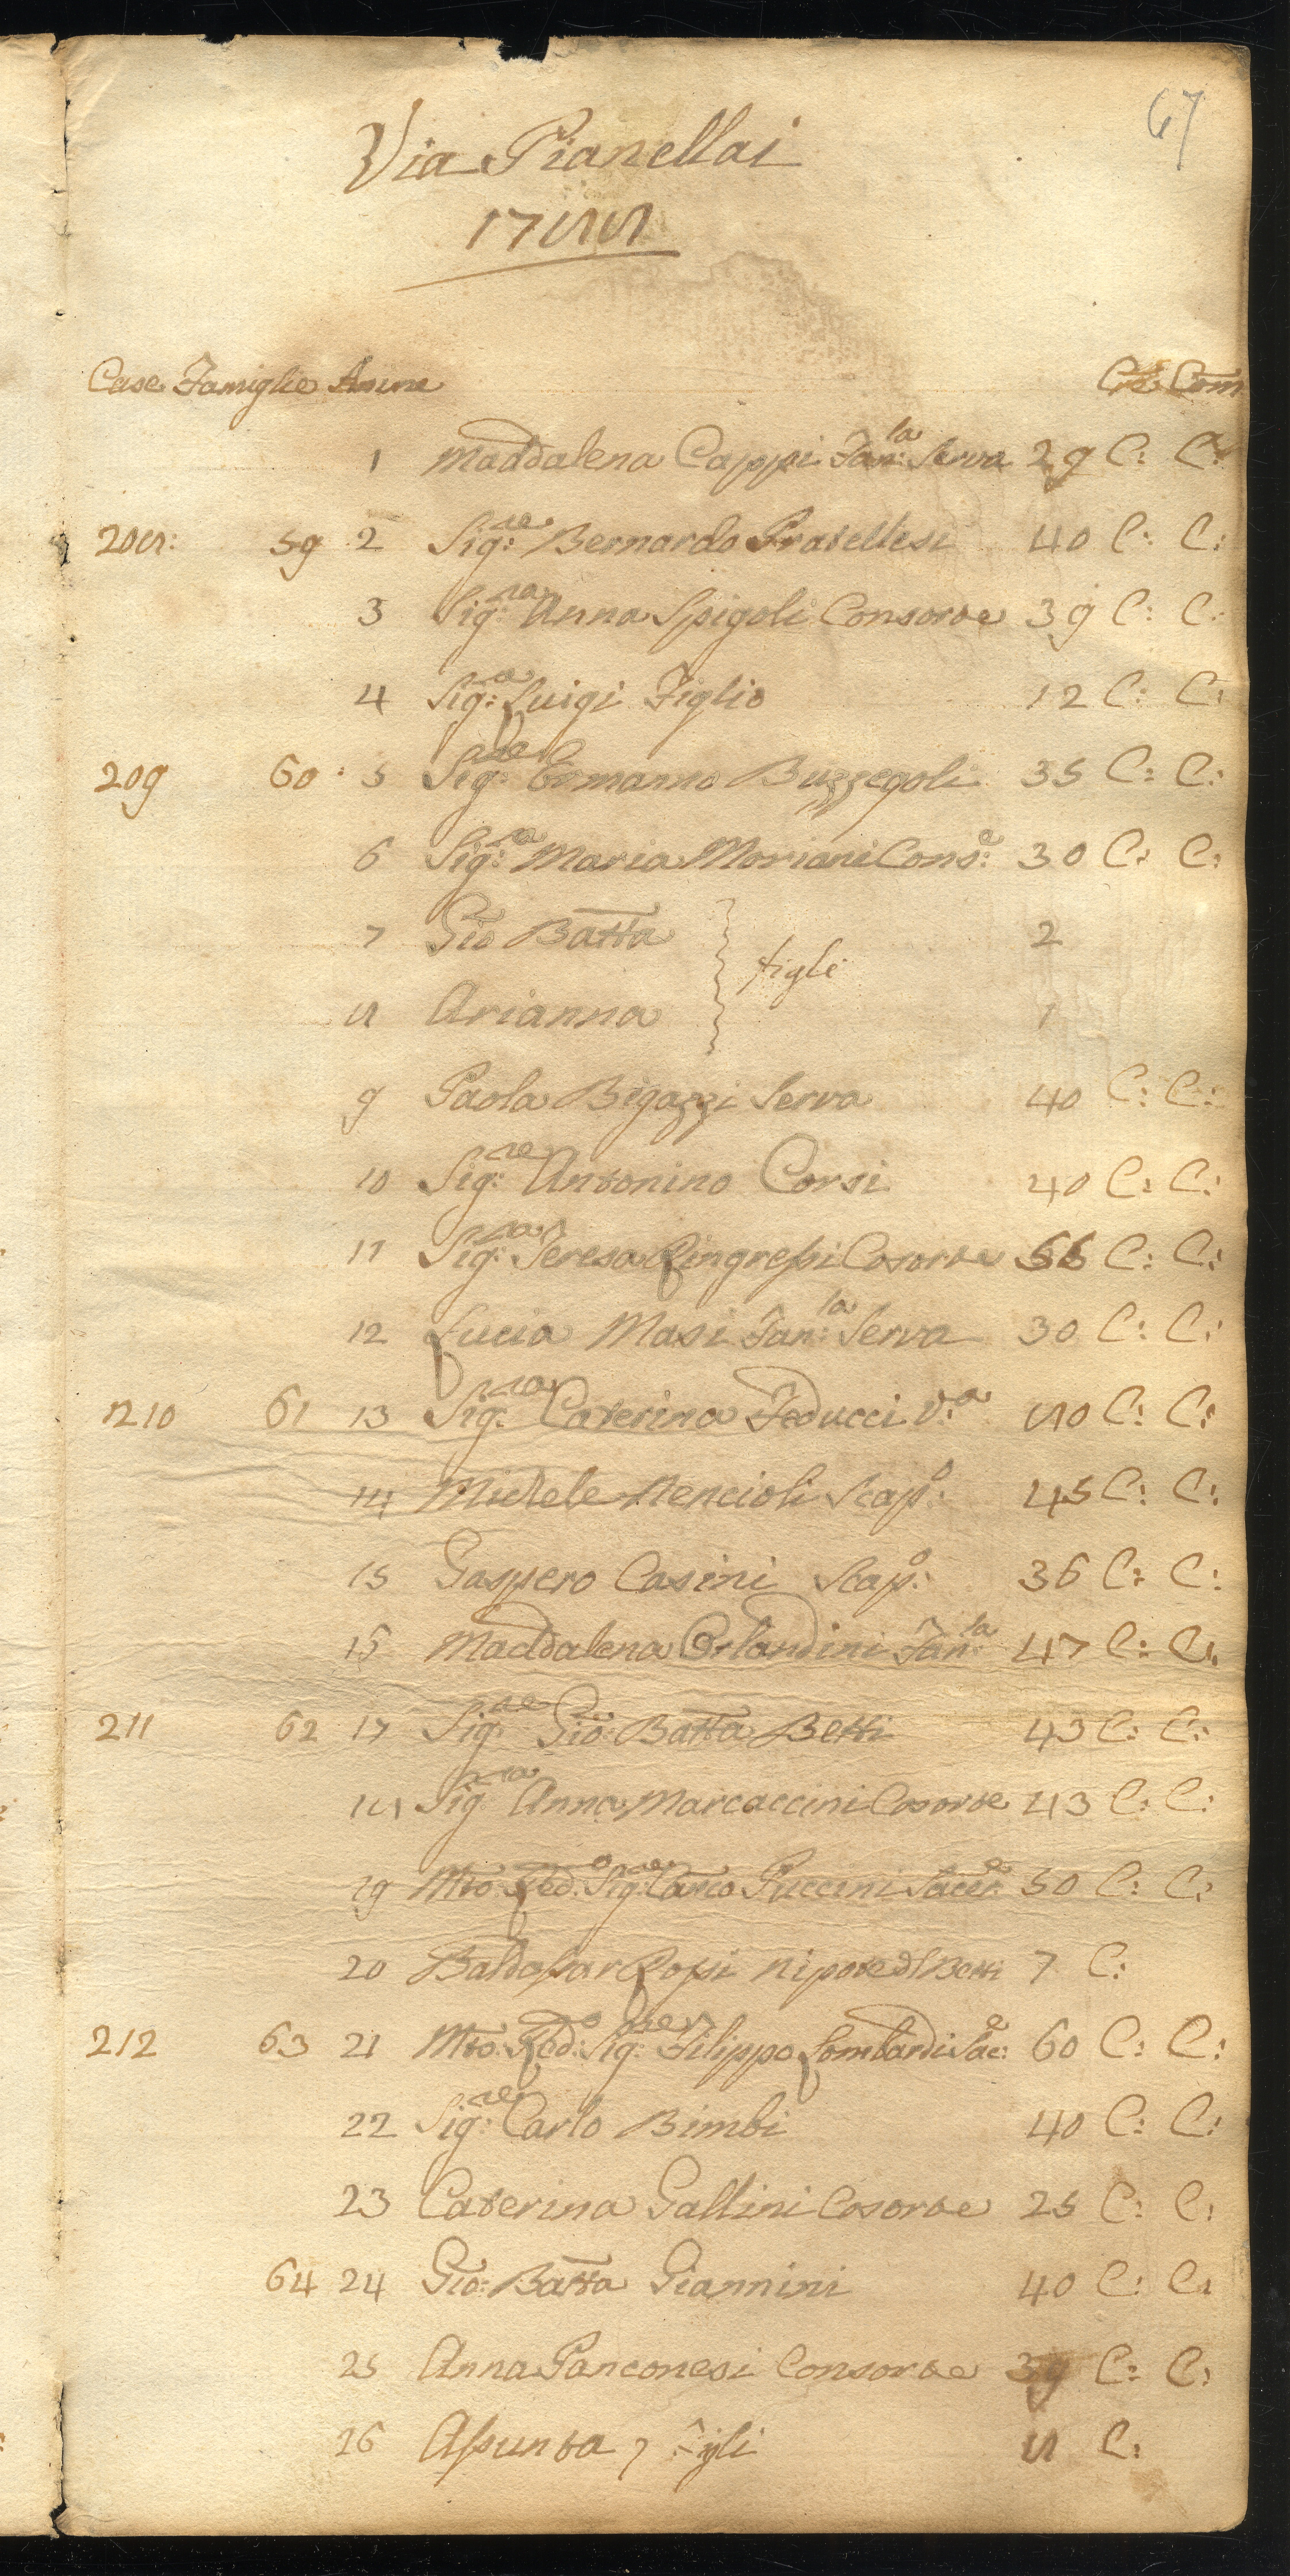 67
Via Pianellai
1788
Case Famiglie Anime Cre Com
1 Maddalena Cappi Fan:la Serva 29 C: C:
208: 59 2 Sig:re Bernardo Pratellesi 40 C: C:
3 Sig:ra Anna Spigoli Consorte 39 C: C:
4 Sig:e Luigi Figlio 12 C: C:
209 60 5 Sig:re Ermanno Buzzegoli 35 C: C:
6 Sig:ra Maria Moriani Cons:e 30 C: C:
7 Gio Batta 2
figli
8 Arianna 1
9 Paola Bigazzi Serva 40 C: C:
10 Sig:re Antonino Corsi 40 C: C:
11 Sig:ra Teresa Ringressi Cosorte C: C:
12 Lucia Masi Fan:la Serva 30 C: C:
210 61 13 Sig:ra Caterina Feducci V:a 80 C: C:
14 Michele Nencioli Scap:o 45 C: C:
15 Gaspero Casini Scap:o 36 C: C:
16 Maddalena Orlandini Fan:la 47 C: C:
211 62 17 Sig:re Gio: Batta Betti 43 C: C:
18 Sig:ra Anna Marcaccini Cosorte 43 C: C:
19 Mto: Red:o Sig:re Carlo Puccini Sacer:e 50 C: C:
20 Baldassar Rossi nipote dl Betti 7 C:
212 63 21 Mto: Red:o Sig:re Filippo Lombardi Sac:e 60 C: C:
22 Sig:re Carlo Bimbi 40 C: C:
23 Caterina Gallini Cosorte 25 C: C:
64 24 Gio: Batta Giannini 40 C: C:
25 Anna Panconesi Consorte 39 C: C:
26 Assunta figli 8 C: